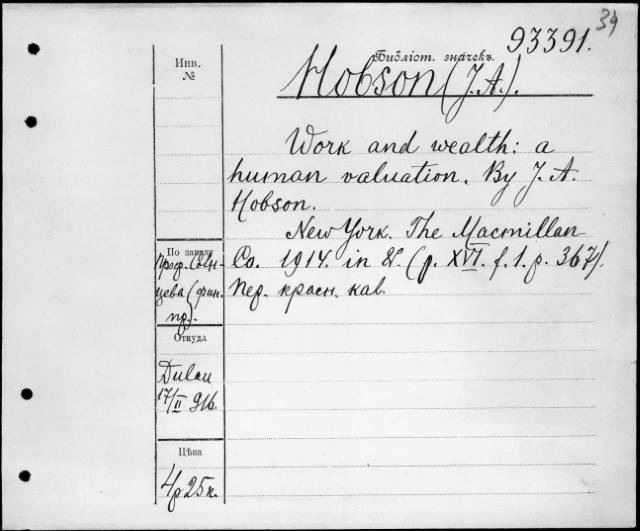 34
93391.
Инв.
№
Библіот. значекъ.
Hobson (J. A.).
Work and wealth: a
human valuation. By J. A.
Hobson.
New York. The Macmillan
Co. 1914. in 8°. (p. XVI. f. 1. p. 367).
Пер. красн. кав.
По заказу
Проф.
цева (фин.
пр).
Откуда
Dulau
17/II 916.
Цѣна
4р 25к.